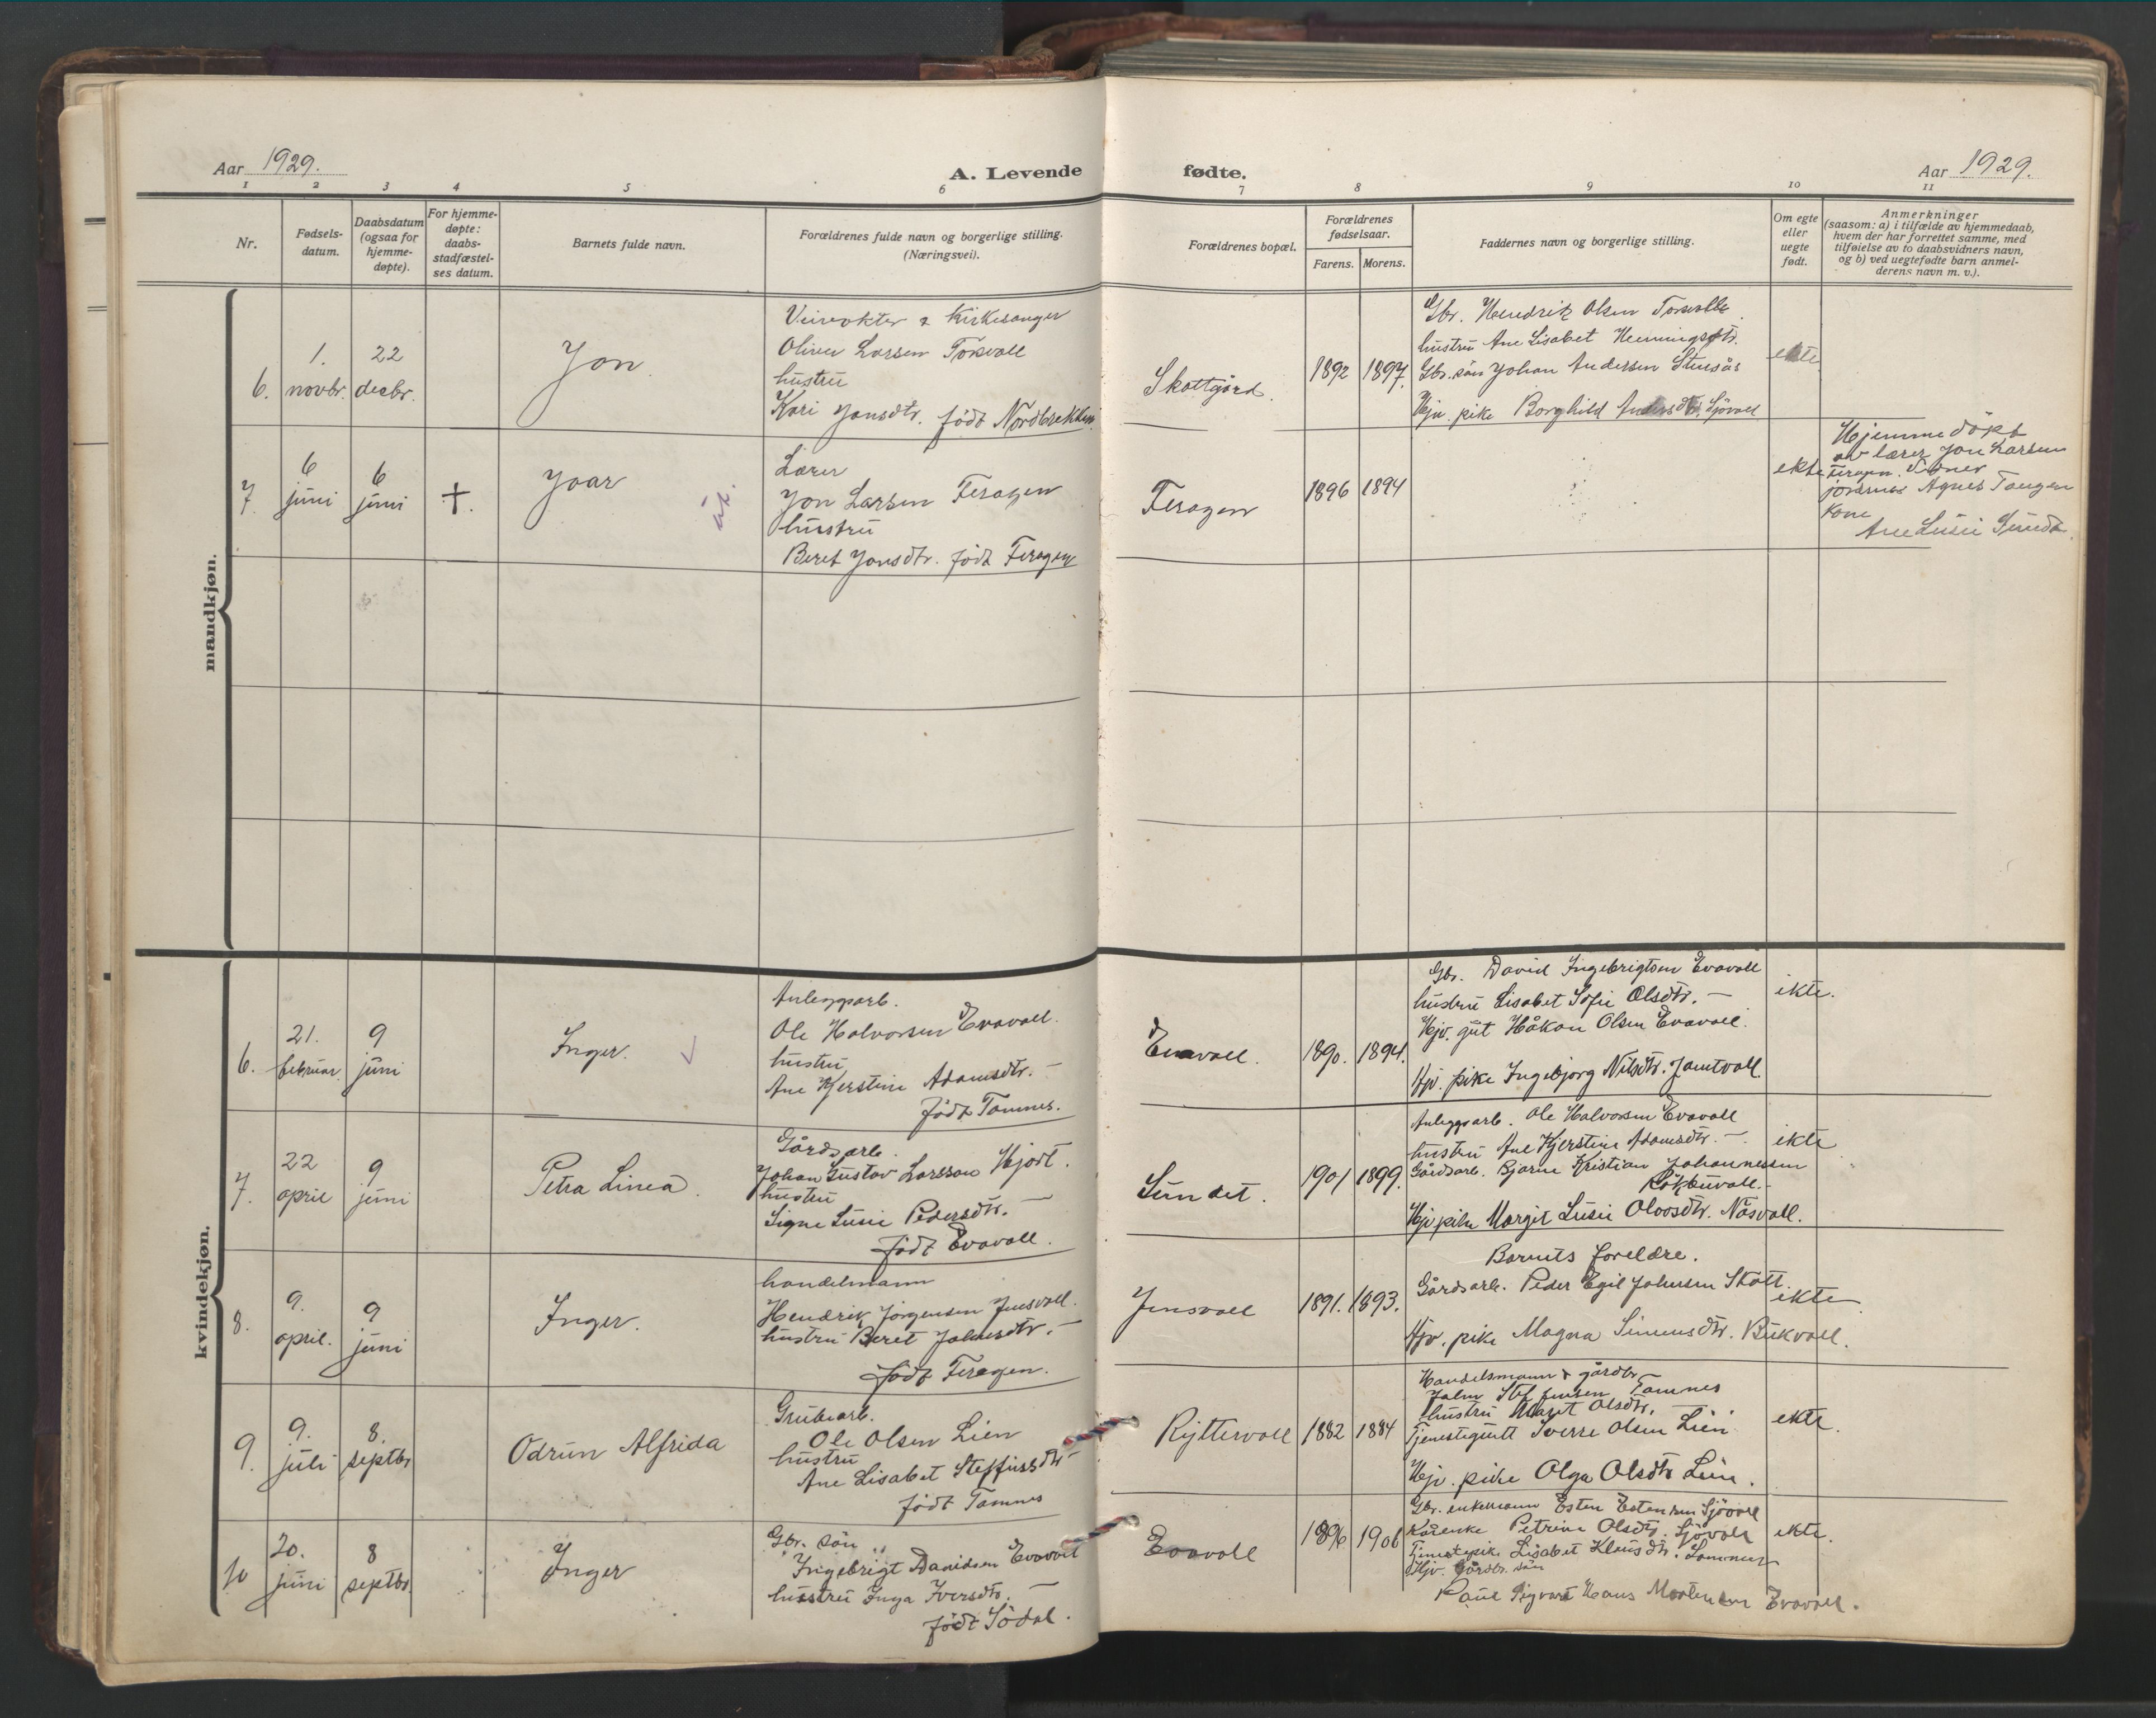 Aar 1929.
A. Levende fødte.
Aar 1929.
1 2 3 4 5 6 7 8 9 10 11
Nr.
Fødsels-
datum.
Daabsdatum
(ogsaa for
hjemme-
døpte).
For hjemme-
døpte:
daabs-
stadfæstel-
ses datum.
Barnets fulde navn.
Forældrenes fulde navn og borgerlige stilling.
(Næringsvei).
Forældrenes bopæl.
Forældrenes
fødselsaar.
Farens. Morens.
Faddernes navn og borgerlige stilling.
Om egte
eller
uegte
født.
Anmerkninger
(saasom: a) i tilfælde av hjemmedaab,
hvem der har forrettet samme, med
tilføielse av to daabsvidners navn,
og b) ved uegtefødte barn anmel-
derens navn m. v.).
mandkjøn.
6.
1.
novbr.
22
decbr.
Jon.
Veivokter & Kirkesanger
Oliver Larsen Torsvoll
hustru
Kari Jonsdtr. født Nordbrekken
Skottgård.
1892 1897.
Gbr. Hendrik Olsen
hustru Ane Lisabet Henningsdtr.
Gbr. sön Johan Andersen Stensås
Hjv. pike Borghild Andersdtr. Sjövoll
ekte
7.
6
juni
6
juni
†.
Joar
Lærer
Jon Larsen Feragen
hustru
Beret Jonsdtr. født Feragen
Feragen
1896 1894
ekte
Hjemmedöpt
av lærer Jon Larsen
Feragen. Vidner
jordmor Agnes Tangen
Kone
Ane Lusie Sundt.
kvindekjøn.
6.
21.
februar.
9
juni
Inger.
Anleggsarb.
Ole Halvorsen Evavoll.
hustru
Ane Kjerstine Adamsdtr. —
født Tamnes.
Evavoll.
1890. 1894.
Gbr. David Ingebrigtsen Evavoll
hustru Lisabet Sofie Olsdtr. —
Hjv. gut Håkon Olsen Evavoll.
Hjv. pike Ingebjorg Nilsdtr. Jamtvoll.
ekte.
7.
22
april
9
juni
Petra Linea.
Gårdsarb.
Johan Gustav Larsson Hjort.
hustru
Signe Lusie Pedersdtr. —
født Evavoll.
Sundet.
1901 1899.
Anleggsarb. Ole Halvorsen Evavoll
hustru Ane Kjerstine Adamsdtr. —
Gårdsarb. Bjarne Kristian Johannessen
Hjv pike Margit Lusie Olavsdtr. Näsvoll.
ekte
8.
9.
april.
9
juni
Inger.
handelmann
Hendrik Jörgensen Jensvoll.
hustru Beret Johnsdtr. —
født Feragen.
Jensvoll
1891. 1893.
Barnets foreldre.
Gårdsarb. Peder Egil Johnsen Skott.
Hjv. pike Magna Simensdtr. Bukvoll.
ekte
9.
9.
juli
8.
septbr
Odrun Alfrida
Grubearb.
Ole Olsen Lien
hustru
Ane Lisabet Steffensdtr
født Tamnes
Ryttervoll
1882 1884
Handelsmann & gårdbr
John Steffensen Tamnes
hustru Marit Olsdtr. —
Tjenestegutt Sverre Olsen Lien
Hjv. pike Olga Olsdtr Lien.
ekte.
10
20.
juni
8
septbr.
Inger
Gbr. sön
Ingebrigt Davidsen Evavoll
husstru Inga Iversdtr. —
født Södal.
Evavoll
1896 1906
Gbr. enkemann Esten Estensen Sjövoll
Kårenke Petrine Olsdtr. Sjövoll
Tjenestepike Lisabet Klausdtr.
Hjv. Gårdbr. sön
Paul Sigvart Hans Mortensen Evavoll.
ekte.